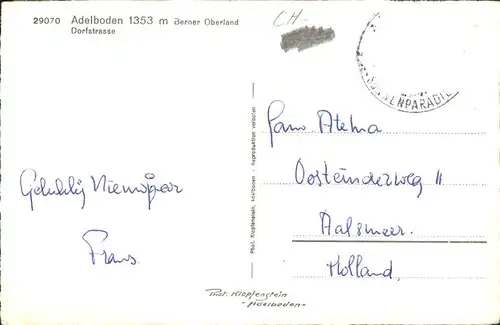 29070 Adelboden 1353 m Berner Oberland
Dorfstrasse
CH-
ENPARADI
Gelukkig Nieuwjaar
Frans
Phot. Klopfenstein, Adelboden - Reproduktion verboten
Fam. Atema
Oosteinderweg 11
Aalsmeer.
Holland.
Phot. Klopfenstein
-Adelboden-